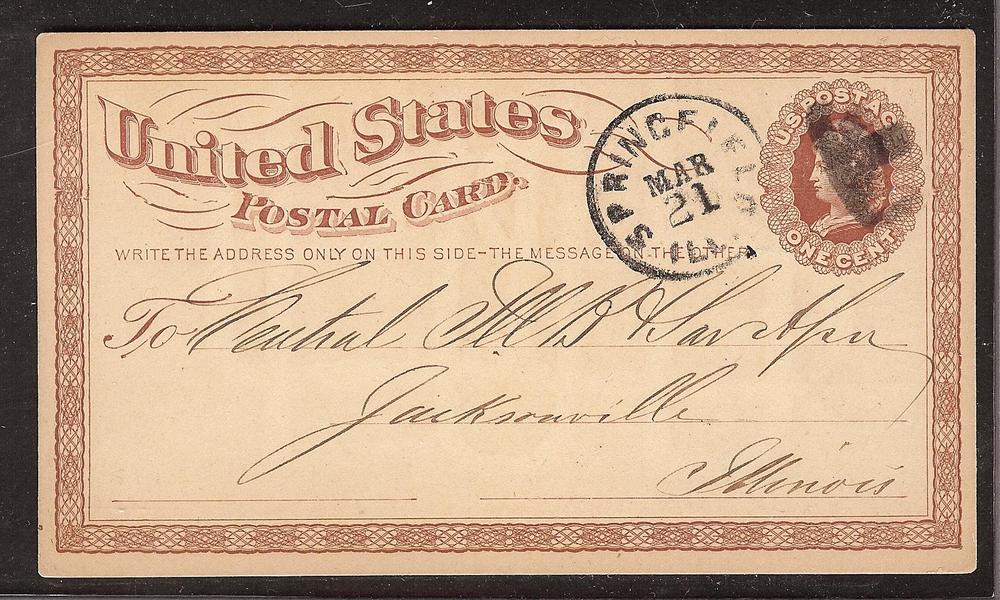 United States
POSTAL CARD.
WRITE THE ADDRESS ONLY ON THIS SIDE-THE MESSAGE ON THE OTHER
SPRINGFIELD
MAR
21
ILL.
U.S. POSTAGE
ONE CENT
To Central Ill
Jacksonville
Illinois